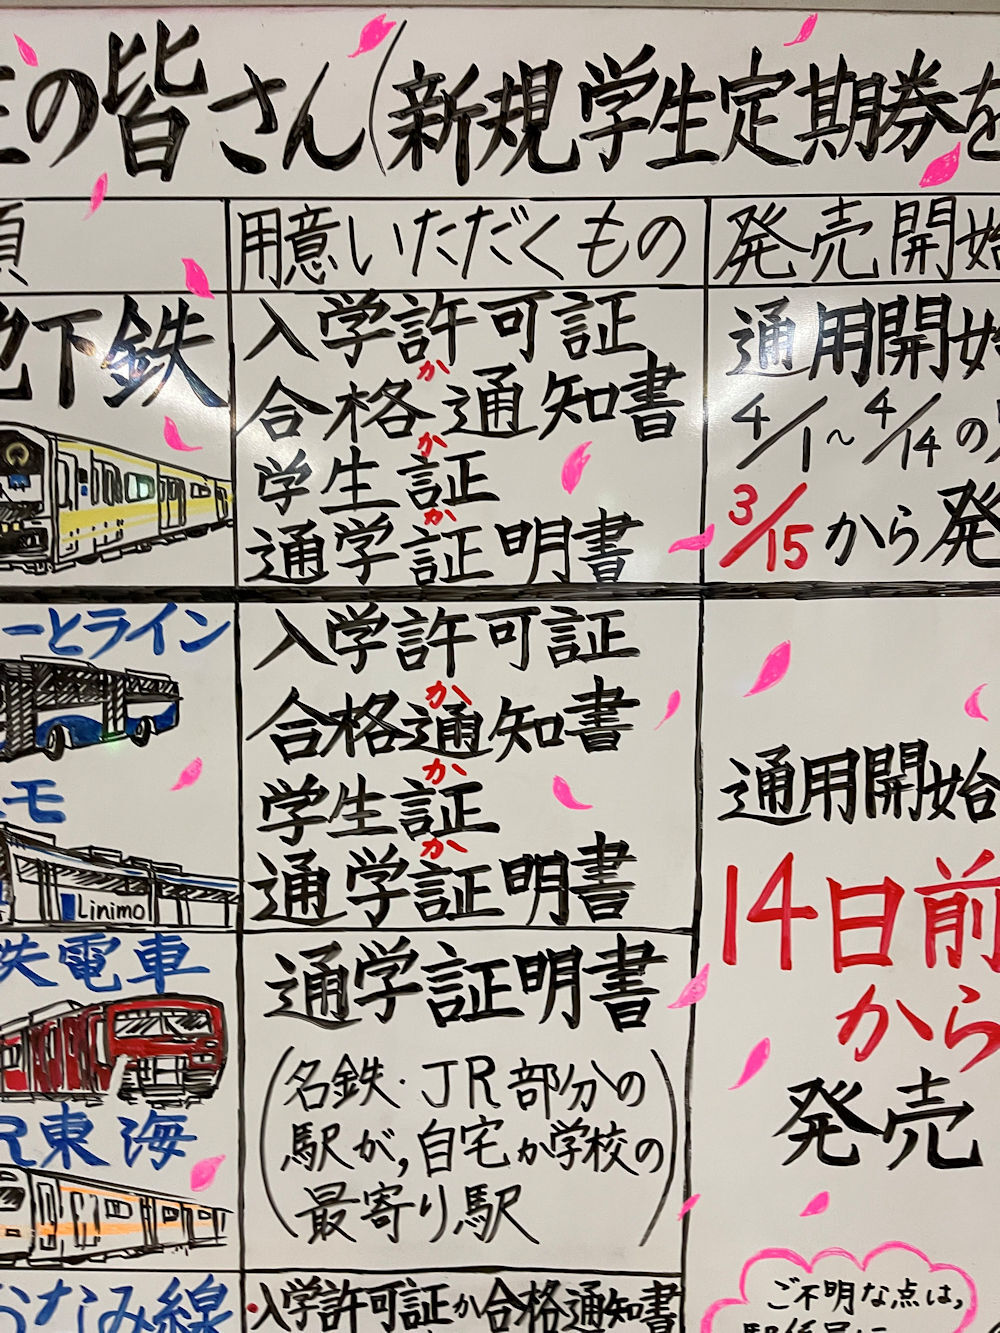 生の皆さん(新規学生定期券を
用意いただくもの
発売開始
地下鉄
入学許可証
か
合格通知書
か
学生証
か
通学証明書
通用開始
4/1〜4/14の
3/15から発
ーとライン
モ
Linimo
入学許可証
か
合格通知書
か
学生証
か
通学証明書
通用開始
14日前
から
発売
鉄電車
R東海
通学証明書
(名鉄・JR部分の
駅が,自宅か学校の
最寄り駅)
おなみ線
・入学許可証か合格通知書
ご不明な点は,
駅係員に